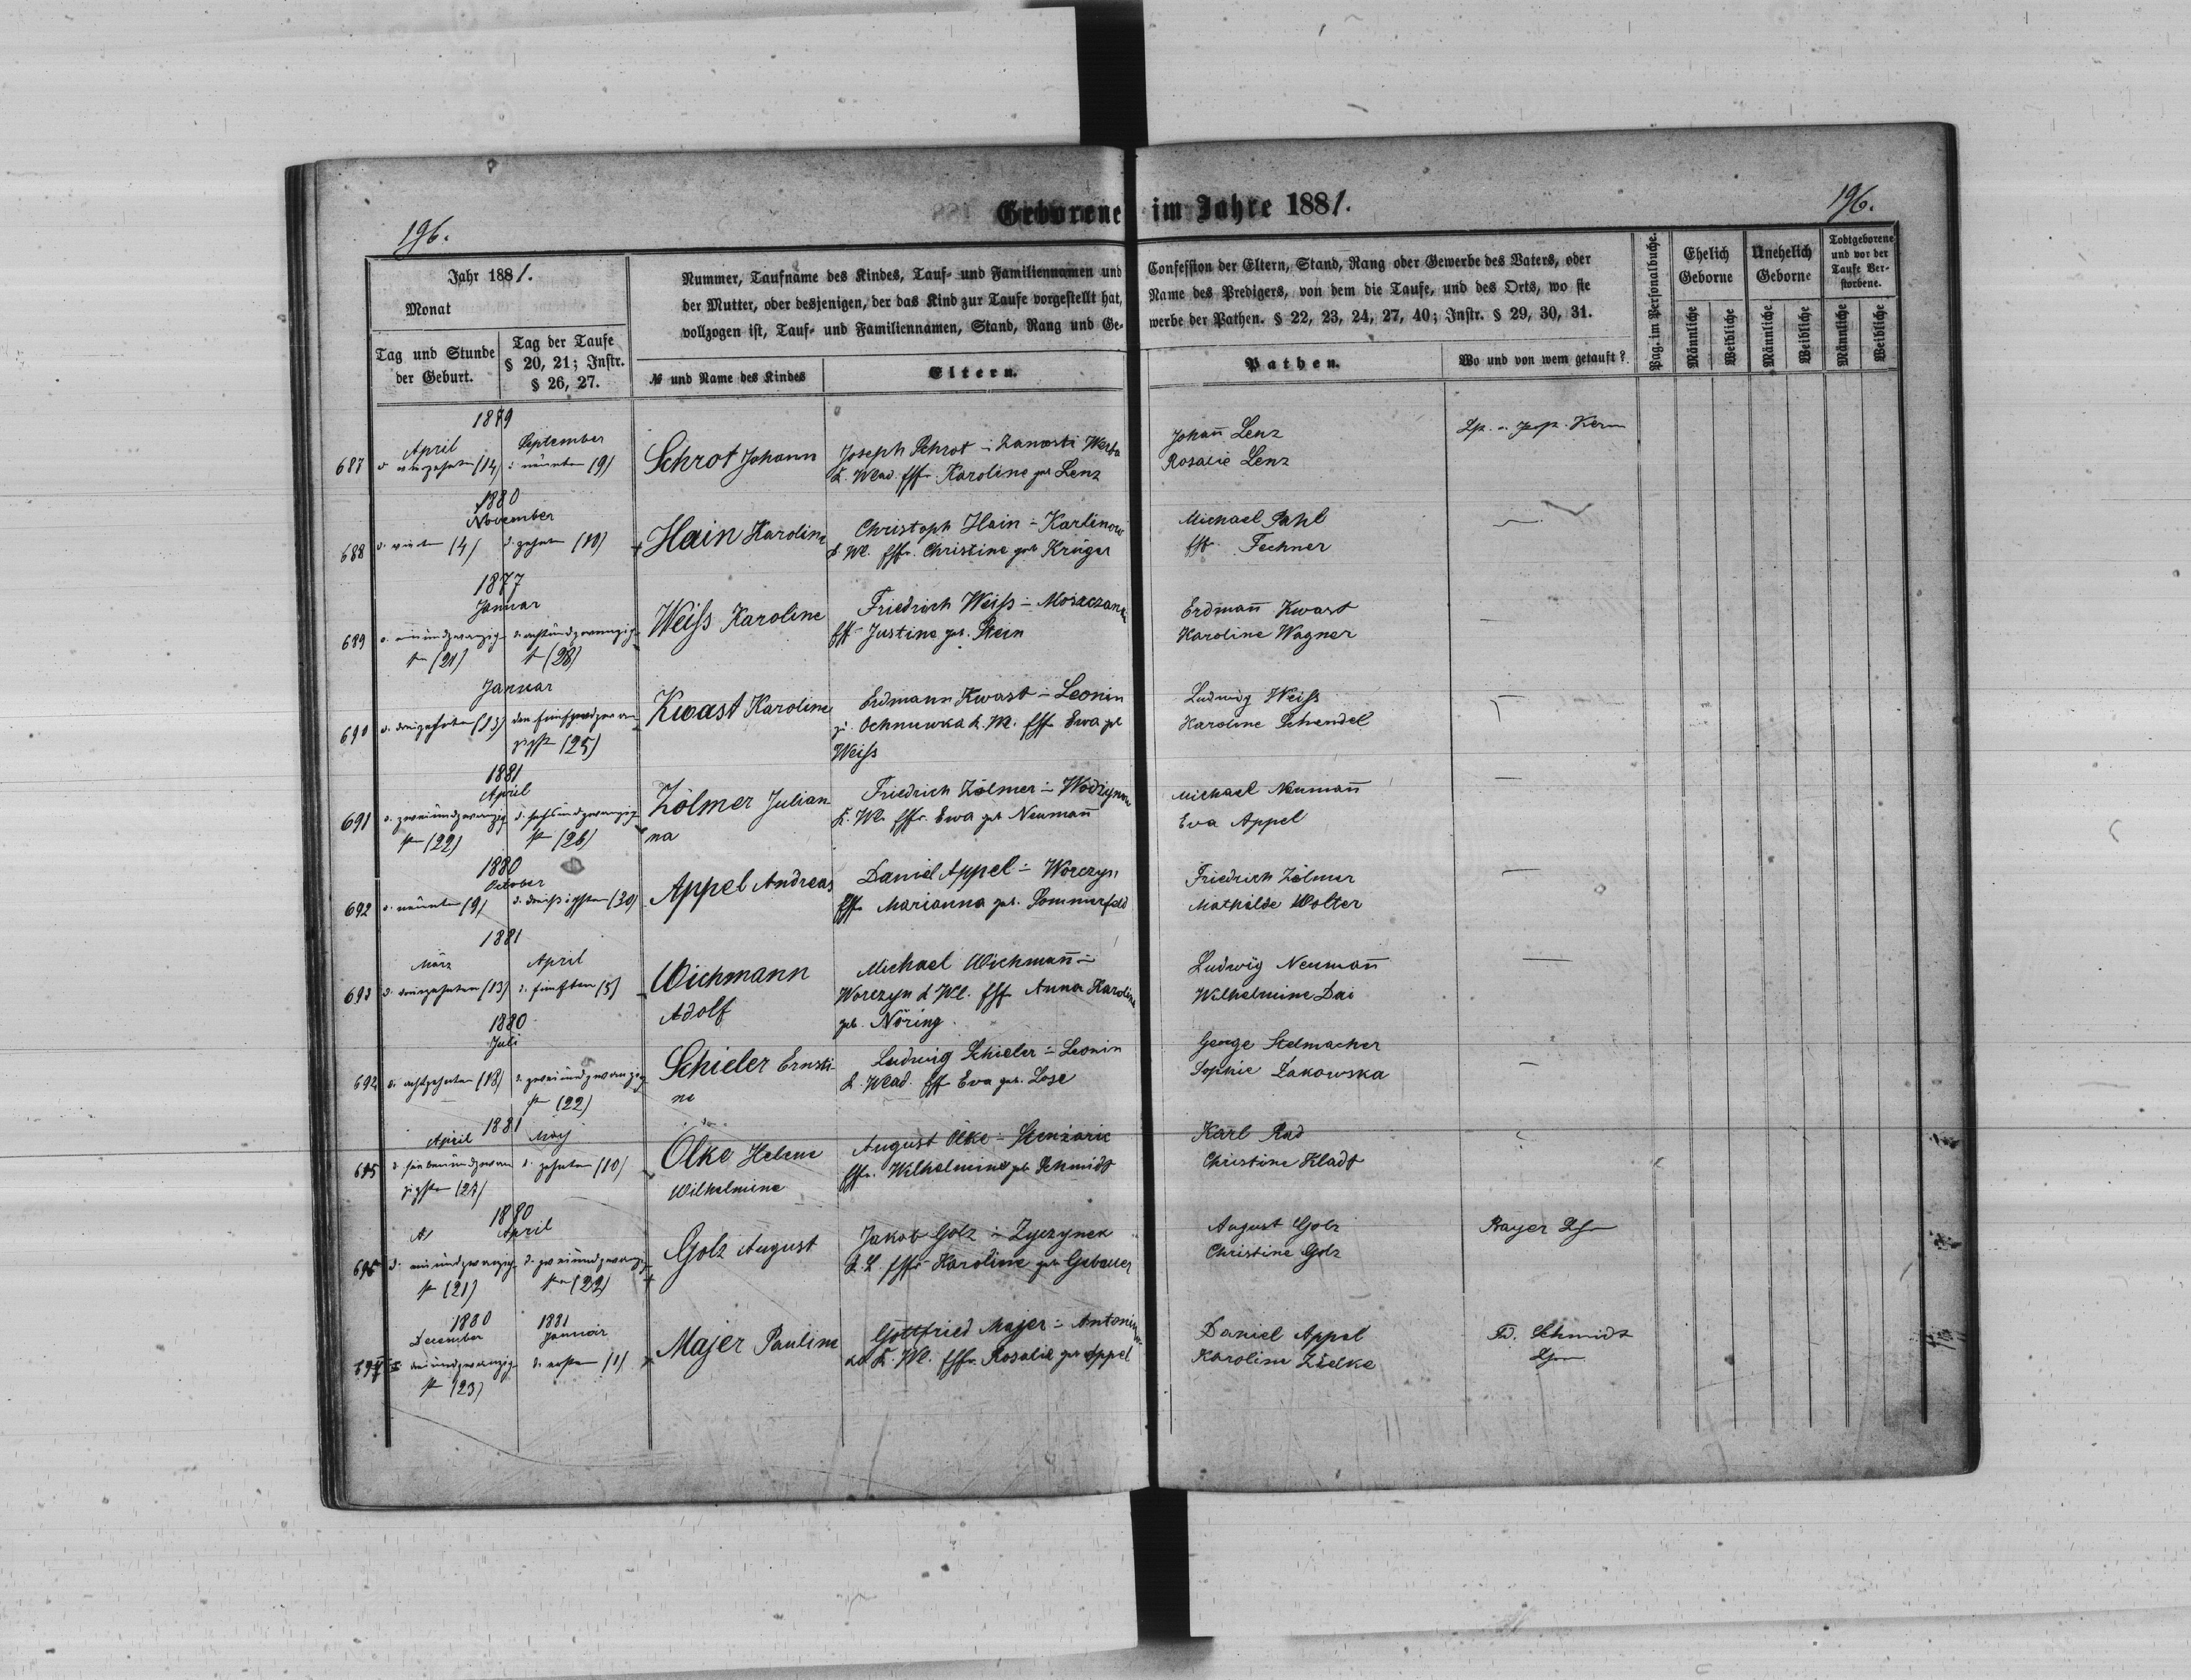 Geborene im Jahre 1881.
196.
196.
Jahr 1881.
Monat
Tag und Stunde der Geburt.
Tag der Taufe § 20, 21; Instr. § 26, 27.
Nummer, Taufname des Kindes, Tauf- und Familiennamen und
der Mutter, oder desjenigen, der das Kind zur Taufe vorgestellt hat,
vollzogen ist, Tauf- und Familiennamen, Stand, Rang und Ge-
№ und Name des Kindes
Eltern.
Confession der Eltern, Stand, Rang oder Gewerbe des Vaters, oder
Name des Predigers, von dem die Taufe, und des Orts, wo sie
werbe der Pathen. § 22, 23, 24, 27, 40; Instr. § 29, 30, 31.
Pathen.
Wo und von wem getauft?
Pag. im Personalbuche.
Ehelich Geborne
Unehelich Geborne
Todtgeborene und vor der Taufe Verstorbene.
Männliche
Weibliche
Männliche
Weibliche
Männliche
Weibliche
1879
April September
687 d. vierzehnten (14) d. neunten (9) Schrot Johann
Joseph Schrot
Karoline geb Lenz
Johañ Lenz
Rosalie Lenz
Kern
1880
November
688 d. vierten (4) d. zehnten (10) Hain Karoline
Christoph Hain Karlinow
Christine geb Krüger
Michael Pahl
Fechner
1877
Januar
689 d. einundzwanzig d. achtundzwanzig Weiss Karoline
sten (21) st (28)
Friedrich Weiss
Justine geb. Stein
Erdmañ Kwast
Karoline Wagner
Januar
690 d. dreizehnten (13) den fünfundzwan Kwast Karoline
zigst (25)
Erdmann Kwast Leonin
Ochnuwka Ewa geb
Weiss
Ludwig Weiss
Karoline Schendel
1881
April
691 d. zweiundzwanzig d. sechsundzwanzig Zölmer Julian
st (22) st (26) na
Friedrich Zölmer
Ewa geb Neumañ
Michael Neumañ
Eva Appel
1880
October
692 d. neunten (9) d. dreissigsten (30) Appel Andreas
Daniel Appel Worczyn
Marianna geb. Sommerfeld
Friedrich Zölmer
Mathilde Wolter
1881
März April
693 d. dreizehnten (13) d. fünften (5) Wichmann
Adolf
Michael Wichmañ
Worczyn Anna Karoline
geb. Nöring
Ludwig Neumañ
Wilhelmine Dai
1880
Juli
692 d. achtzehnten (18) d. zweiundzwanzig Schieler Ernsti
st (22) ne
Ludwig Schieler Leonin
Eva geb. Lose
George Stelmacher
Sophie Zakowska
1881
April May
695 d. siebenundzwan d. zehnten (10) Olke Helene
zigsten (27) Wilhelmine
August Olke
Wilhelmine geb Schmidt
Karl Rad
Christine Kladt
1880
April
696 d. einundzwanzig d. zweiundzwanzig Golz August
st (21) sten (22)
Jakob Golz Zyczynek
Karoline geb Gebauer
August Golz
Christine Golz
Bayer
1880 1881
December Januar
697 dreiundzwanzig d. ersten (1) Majer Pauline
st (23)
Gottfried Majer Antonin
Rosalie geb Appel
Daniel Appel
Karoline Zielke
Fd. Schmidt